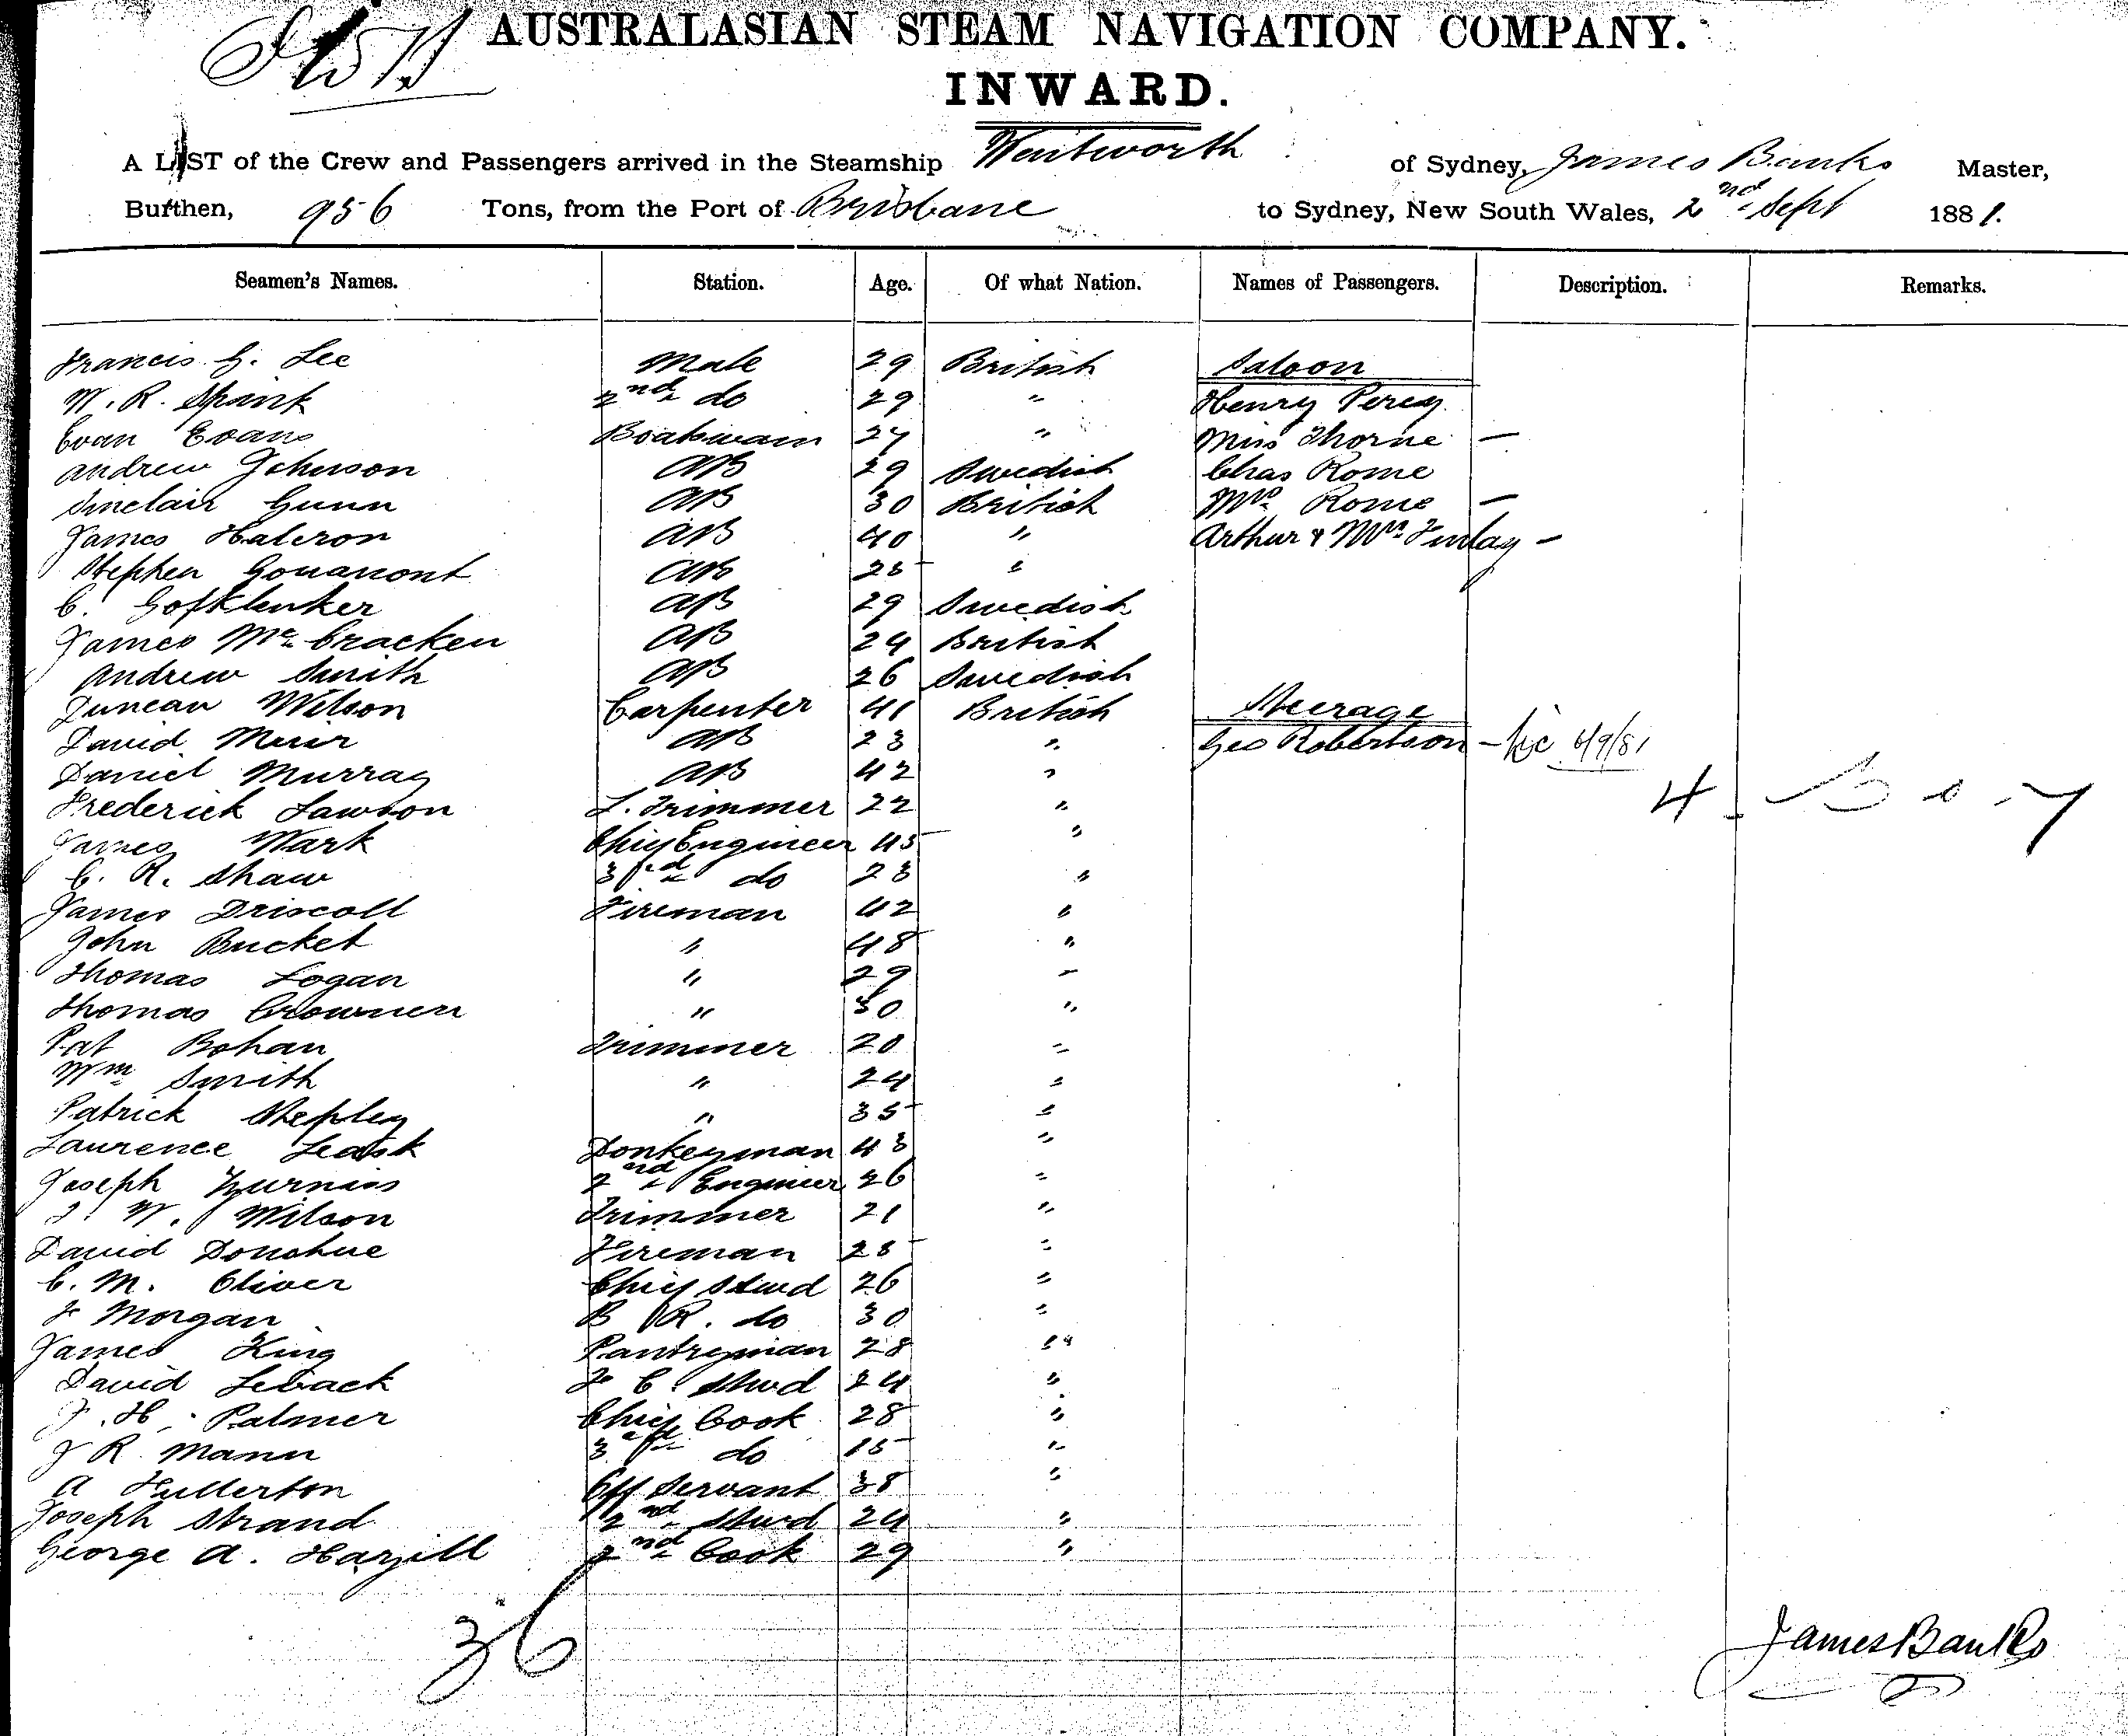 AUSTRALASIAN STEAM NAVIGATION COMPANY.
INWARD.
A LIST of the Crew and Passengers arrived in the Steamship Wentworth of Sydney, James Banks Master,
Burthen, 956 Tons, from the Port of Brisbane to Sydney, New South Wales, 2nd Sept 1881.
Seamen's Names. Station. Age. Of what Nation. Names of Passengers. Description. Remarks.
Francis G. Lee Mate 29 British Saloon
W. R. Spink 2nd do 29 " Henry Percy
Evan Evans Boatswain 27 " Miss Thorne —
Andrew Johnson AB 29 Swedish Chas Rome
Sinclair Gunn AB 30 British Mrs Rome —
James Halcron AB 40 " Arthur & Mrs Finlay —
Stephen AB 25 "
C. AB 29 Swedish
James McCracken AB 24 British
Andrew Smith AB 26 Swedish
Duncan Wilson Carpenter 41 British Steerage
David Muir AB 23 " Geo Robertson — 6/9/81
Daniel Murray AB 42 "
Frederick Lawson L. Trimmer 22 " 4
James Wark Chief Engineer 45 "
C. R. Shaw 3rd do 23 "
James Driscoll Fireman 42 "
John Bucket " 48 "
Thomas Logan " 29 "
Thomas " 30 "
Pat Bohan Trimmer 20 "
Wm Smith " 24 "
Patrick Shepley " 35 "
Laurence Leask Donkeyman 43 "
Joseph 2nd Engineer 26 "
W. Wilson Trimmer 21 "
David Donohue Fireman 25 "
C. M. Oliver Chief Stwd 26 "
F Morgan B R. do 30 "
James King Pantryman 28 "
David Leback F C. Stwd 24 "
J. H. Palmer Chief Cook 28 "
J R. Mann 3rd do 15 "
A Fullerton Off Servant 38 "
Joseph Strand 2nd Stwd 24 "
George A. Hazill 2nd Cook 29 "
36
James Banks